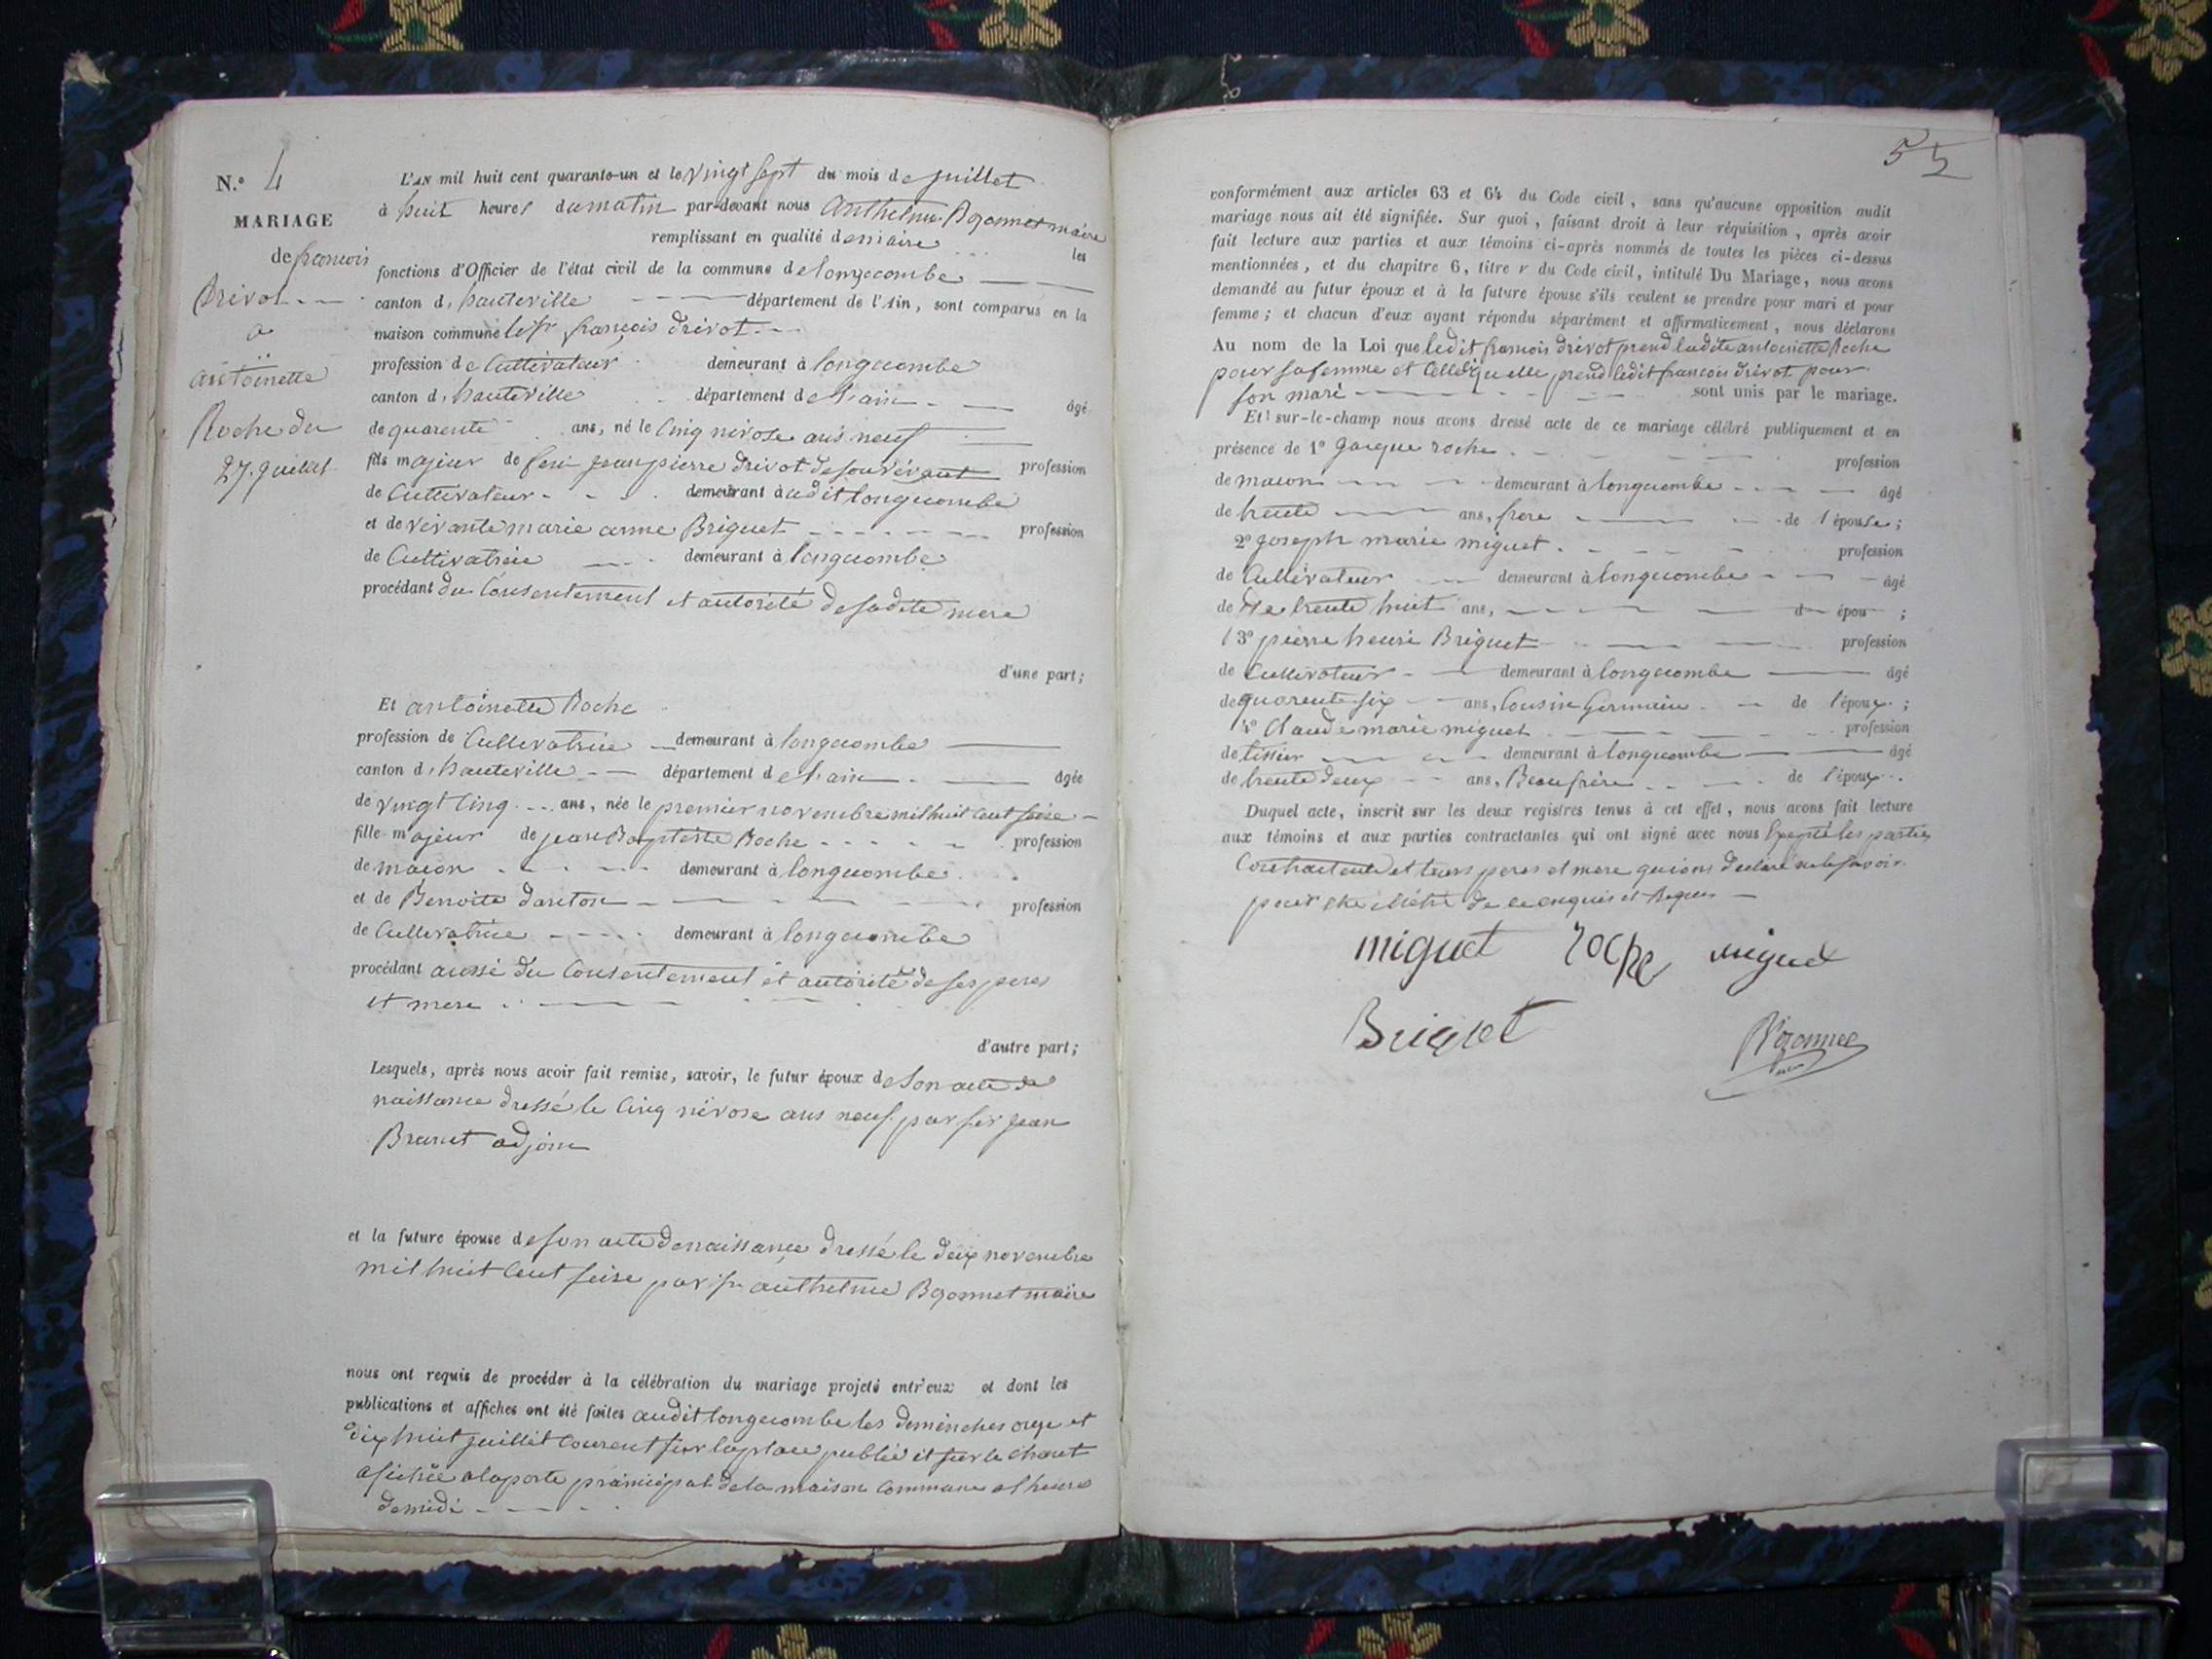 N.º 4
MARIAGE
de francois
Drivot
a
antoinette
Roche du
27. juillet
L'AN mil huit cent quarante-un et le vingt sept du mois de juillet
à huit heures du matin par-devant nous Anthelme maire
remplissant en qualité de maire les
fonctions d'Officier de l'état civil de la commune de longecombe
canton d. hauteville département de l'Ain, sont comparus en la
maison commune le sr françois drivot
profession de Cultivateur demeurant à longecombe
canton d. hauteville département de l'ain âgé
de quarente ans, né le cinq nivose ans neuf
fils majeur de feu jean pierre drivot de son vivant profession
de Cultivateur demeurant audit longecombe
et de vivante marie anne Briguet profession
de Cultivatrice demeurant à longecombe
procédant du Consentement et autorité de sa dite mere
d'une part;
Et antoinette Roche
profession de Cultivatrice demeurant à longecombe
canton d. hauteville département de l'ain âgée
de vingt cinq ans, née le premier novembre mil huit cent seise
fille majeur de jean Baptiste Roche profession
de macon demeurant à longecombe
et de Benoite danton profession
de Cultivatrice demeurant à longecombe
procédant aussi du Consentement et autorité de ses peres
et mere
d'autre part;
Lesquels, après nous avoir fait remise, savoir, le futur époux de son acte de
naissance dressé le cinq nivose ans neuf par sr jean
Brunet adjoin
et la future épouse de son acte de naissance dressé le deux novembre
mil huit cent seise par sr anthelme maire
nous ont requis de procéder à la célébration du mariage projeté entr'eux et dont les
publications et affiches ont été faites audit longecombe les demenches onze et
dix huit juillet courent sur la place publié et sur le champt
afichée a la porte prainciepal de la maison commune a l'heure
de midi
conformément aux articles 63 et 64 du Code civil, sans qu'aucune opposition audit
mariage nous ait été signifiée. Sur quoi, faisant droit à leur réquisition, après avoir
fait lecture aux parties et aux témoins ci-après nommés de toutes les pièces ci-dessus
mentionnées, et du chapitre 6, titre v du Code civil, intitulé Du Mariage, nous avons
demandé au futur époux et à la future épouse s'ils veulent se prendre pour mari et pour
femme; et chacun d'eux ayant répondu séparément et affirmativement, nous déclarons
Au nom de la Loi que ledit francois drivot prend ladite antoinette Roche
pour sa femme et celle qu elle prend ledit francois drivot pour
son mari sont unis par le mariage.
Et sur-le-champ nous avons dressé acte de ce mariage célébré publiquement et en
présence de 1º jacque roche profession
de macon demeurant à longecombe âgé
de trente ans, frere de l'épouse;
2º joseph marie miguet profession
de Cultivateur demeurant à longecombe âgé
de de trente huit ans, d épou ;
3º pierre henri Briguet profession
de Cultivateur demeurant à longecombe âgé
de quarente six ans, Cousin Germain de l'époux;
4º Claude marie miguet profession
de tissier demeurant à longecombe âgé
de trente deux ans, Beaufrère de l'époux.
Duquel acte, inscrit sur les deux registres tenus à cet effet, nous avons fait lecture
aux témoins et aux parties contractantes qui ont signé avec nous Exepté les parties
Contractente et leurs peres et mere qui ont declaré ne le savoir
pour de ce enquis et Requis
miguet roche miguet
Briguet